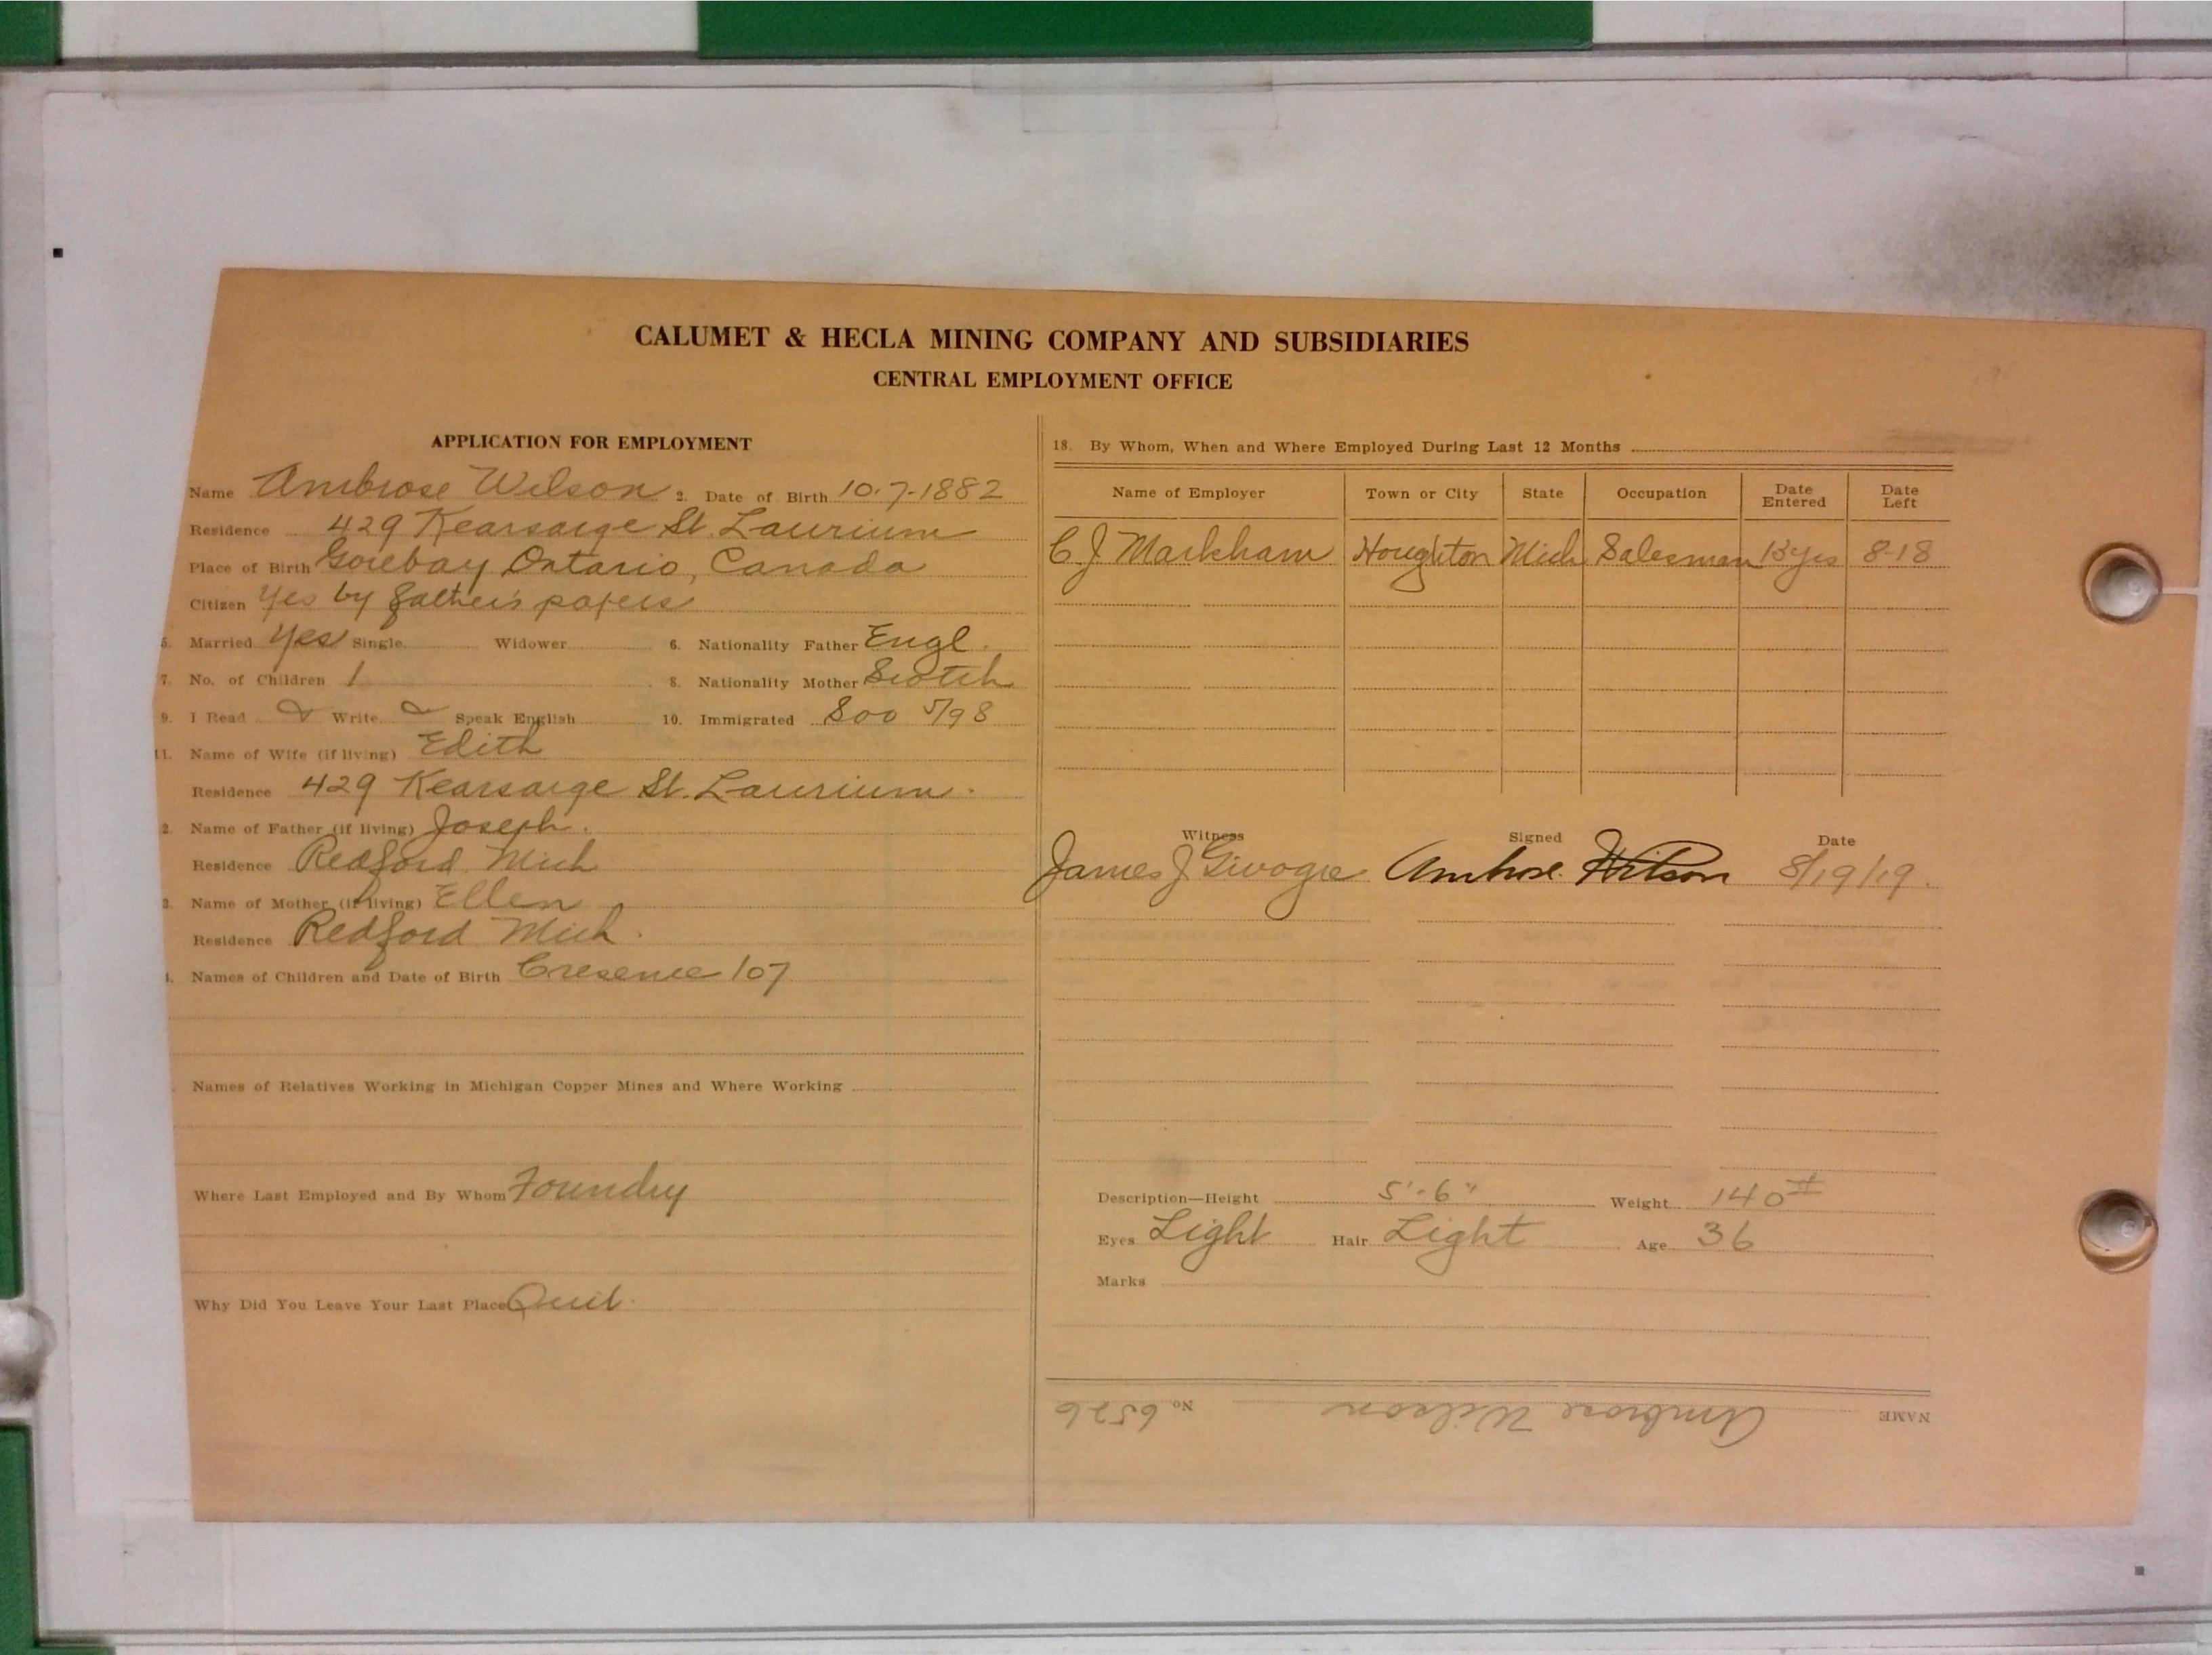 CALUMET & HECLA MINING COMPANY AND SUBSIDIARIES
CENTRAL EMPLOYMENT OFFICE
APPLICATION FOR EMPLOYMENT
Name Ambrose Wilson 2. Date of Birth 10-7-1882
Residence 429 Kearsarge St. Laurium
Place of Birth Gorebay Ontario, Canada
Citizen Yes by father's papers
5. Married Yes Single Widower 6. Nationality Father Engl.
7. No. of Children 1 8. Nationality Mother Scotch
9. I Read Write Speak English 10. Immigrated Soo 5/98
11. Name of Wife (if living) Edith
Residence 429 Kearsarge St. Laurium.
2. Name of Father (if living) Joseph.
Residence Redford Mich
3. Name of Mother (if living) Ellen
Residence Redford Mich.
4. Names of Children and Date of Birth 107
Names of Relatives Working in Michigan Copper Mines and Where Working
Where Last Employed and By Whom Foundry
Why Did You Leave Your Last Place Quit.
18. By Whom, When and Where Employed During Last 12 Months
Name of Employer Town or City State Occupation Date Entered Date Left
C J Markham Houghton Mich Salesman 8-18
Witness Signed Date
James J Ambrose Wilson 8/19/19.
Description—Height 5'-6" Weight 140#
Eyes Light Hair Light Age 36
Marks
NAME Ambrose Wilson No. 6526